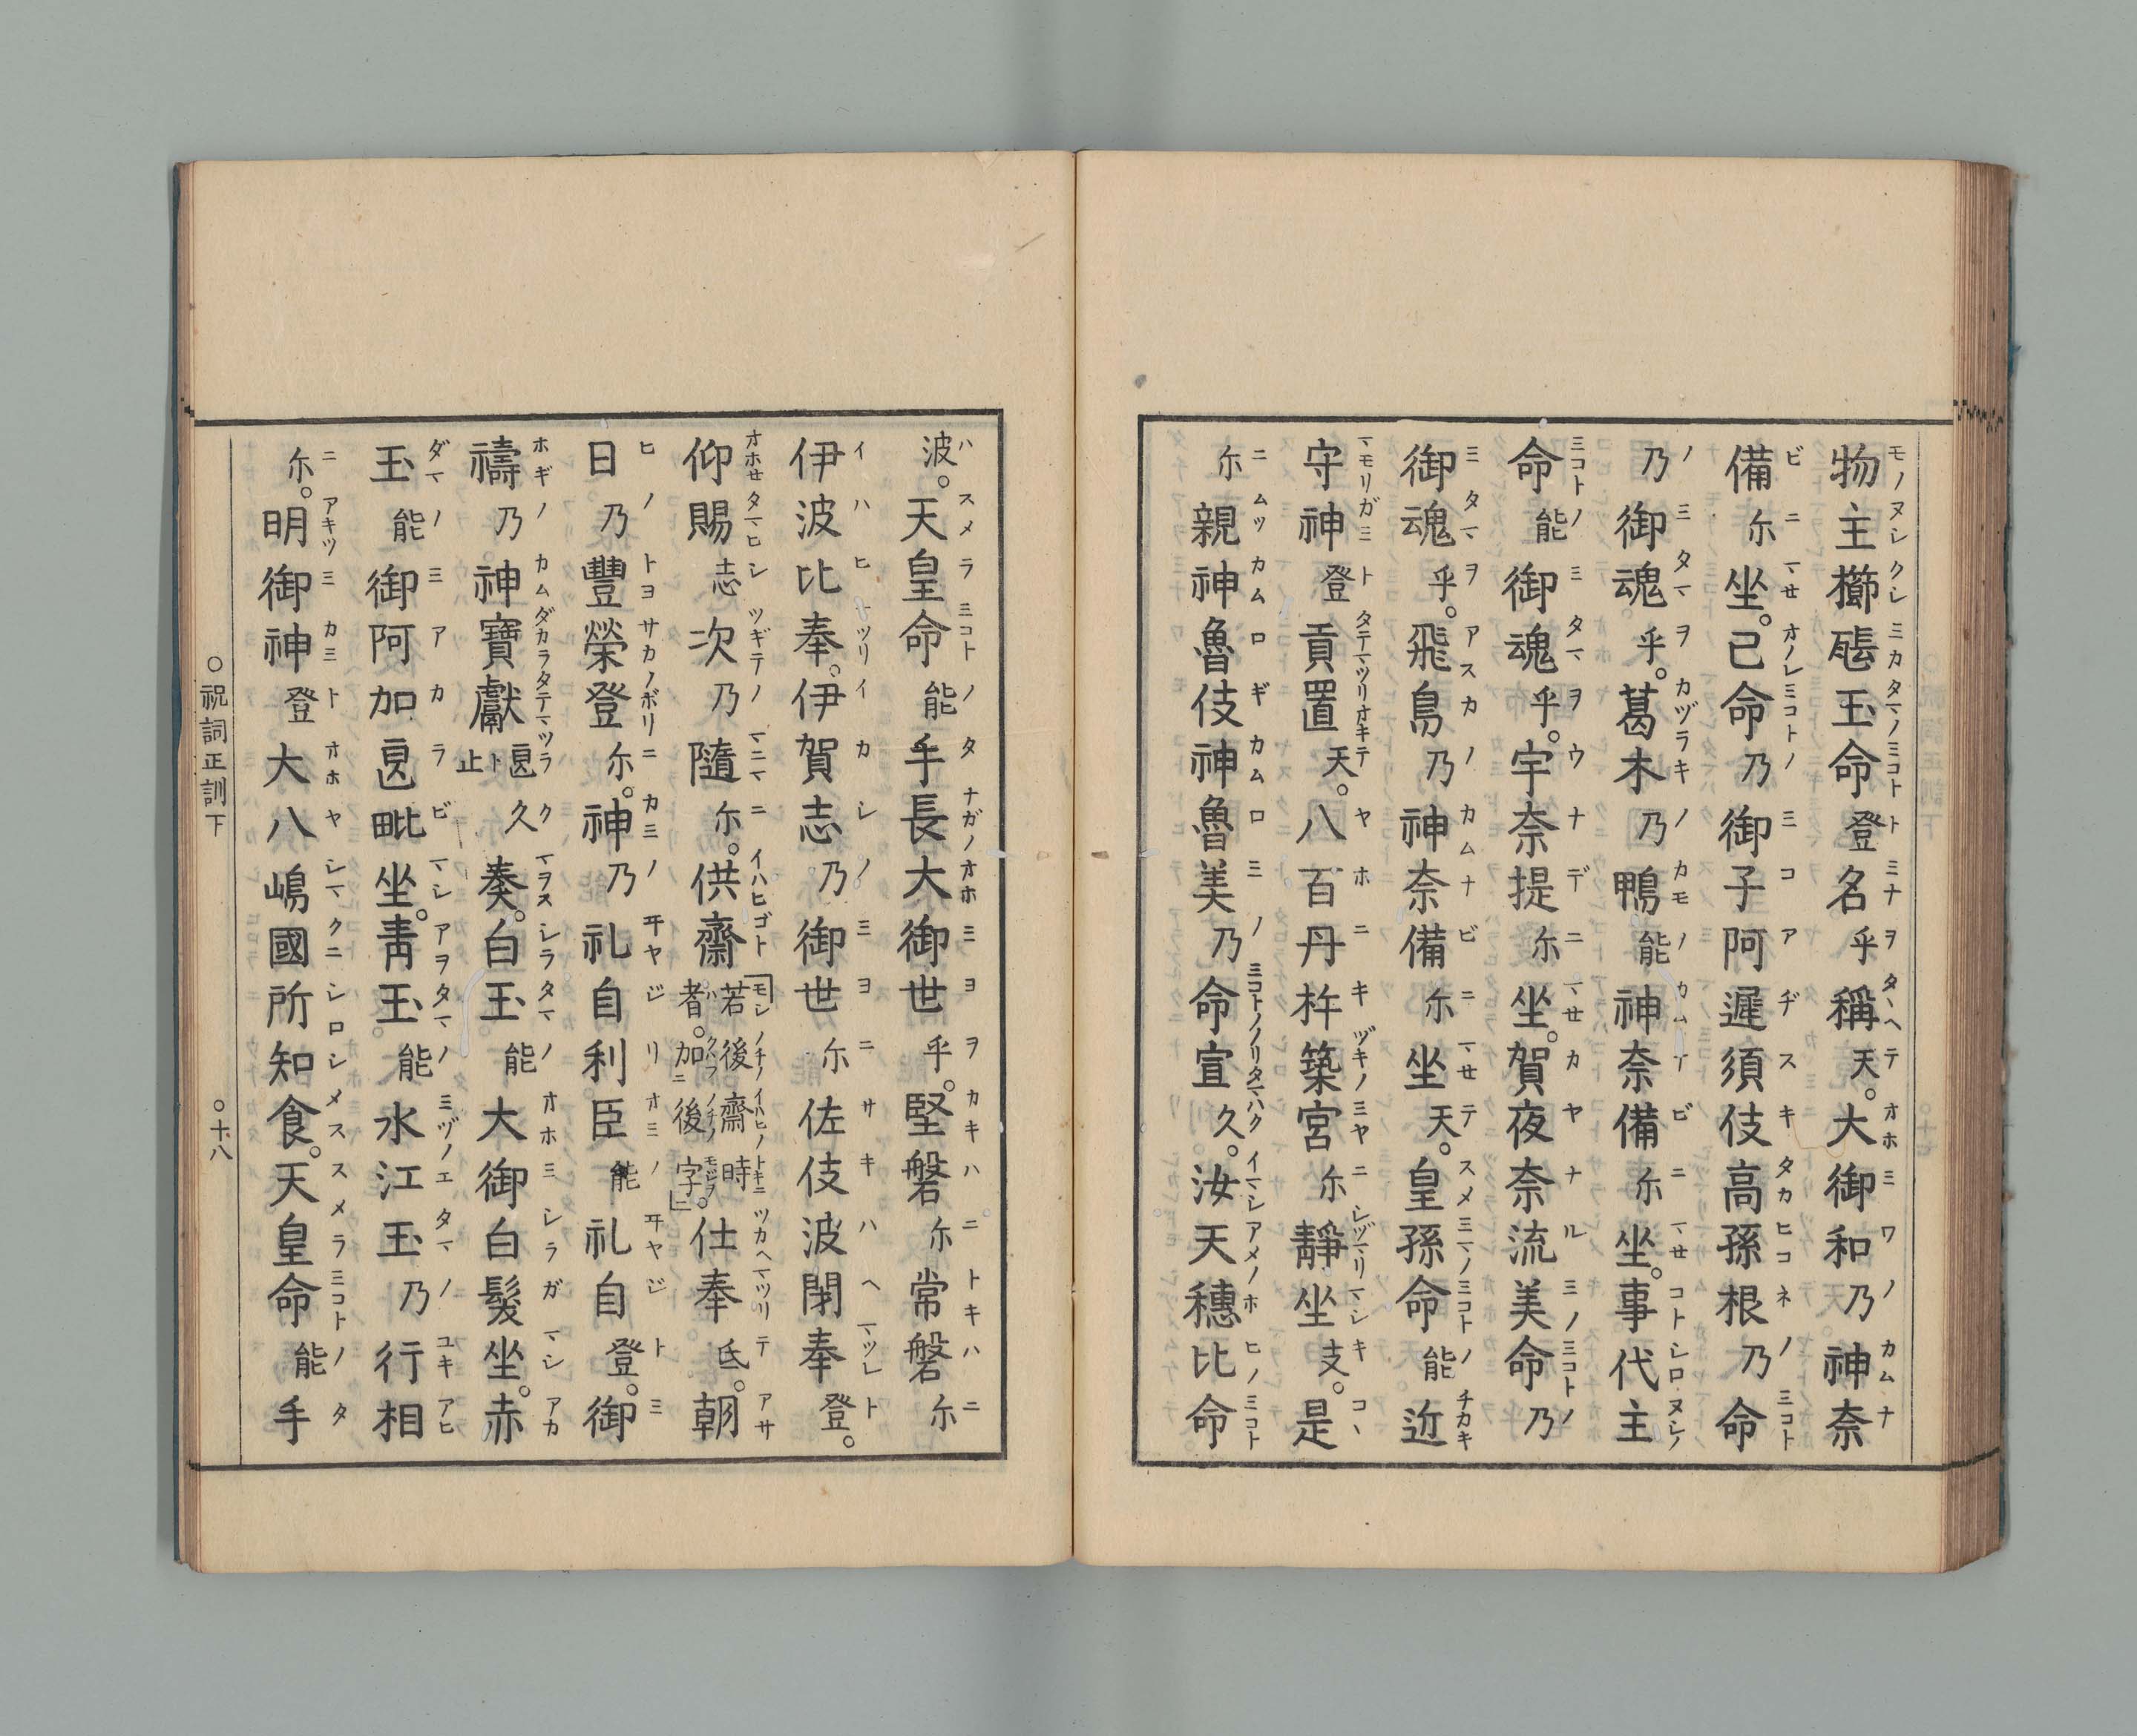 物主櫛𤭖玉命登名乎稱天。大御和乃神奈
備尓坐。己命乃御子阿遲須伎高孫根乃命
乃御魂乎。葛木乃鴨能神奈備尓坐。事代主
命能御魂乎。宇奈提尓坐。賀夜奈流美命乃
御魂乎。飛鳥乃神奈備尓坐天。皇孫命能近
守神登貢置天。八百丹杵築宮尓靜坐支。是
尓親神魯伎神魯美乃命宣久。汝天穗比命
波。天皇命能手長大御世乎。堅磐尓常磐尓
伊波比奉。伊賀志乃御世尓佐伎波閇奉登。
仰賜志次乃隨尓。供齋「若後齋時者。加後字。」仕奉氐。朝
日乃豐榮登尓。神乃礼自利臣能礼自登。御
禱乃神寶獻良止久奏。白玉能大御白髮坐。赤
玉能御阿加良毗坐。青玉能水江玉乃行相
尓。明御神登大八嶋國所知食。天皇命能手
○祝詞正訓下 ○十八